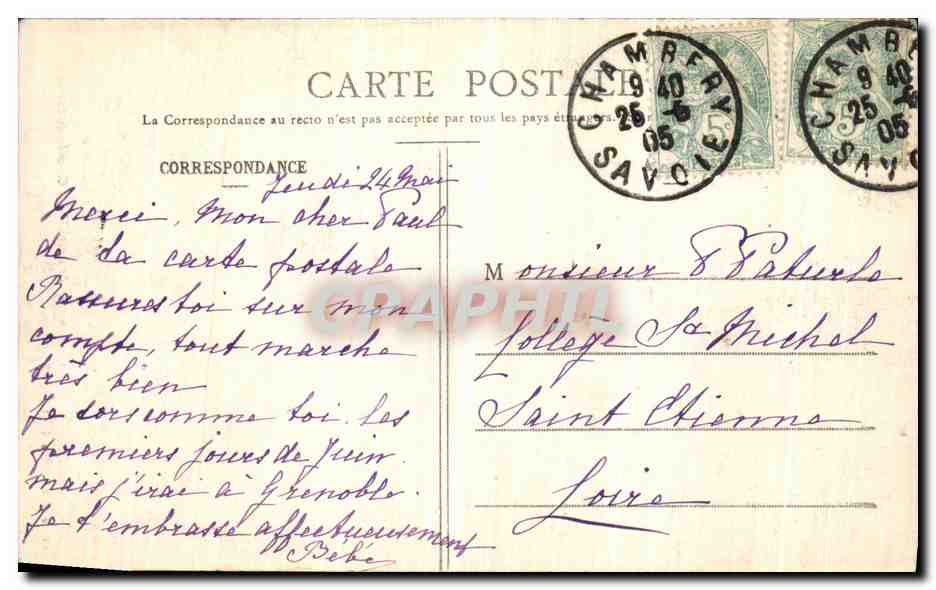 CARTE POSTALE
La Correspondance au recto n'est pas acceptée par tous les pays étrangers.
CORRESPONDANCE
Jeudi 24 Mai
Merci, Mon cher Paul
de ta carte postale
Rassures toi sur mon
compte, tout marche
très bien
Je sors comme toi les
premiers jours de Juin
mais j'irai à Grenoble.
Je t'embrasse affectueusement
Bébé
CHAMBERY
9 40
25 -5
05
SAVOIE
5
CHAMBE
9 40
25
05
SAVO
5
Monsieur P Paturle
Collège St Michel
Saint Etienne
Loire
CPAPHIL